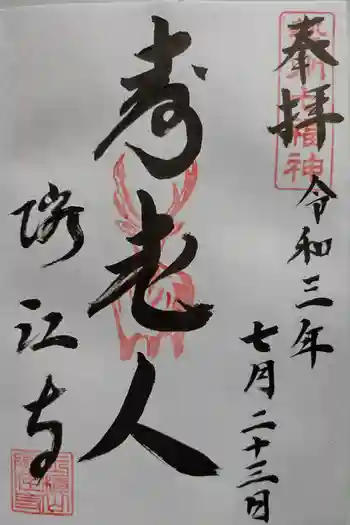 奉拝
令和三年
七月二十三日
寿老人
隣江寺